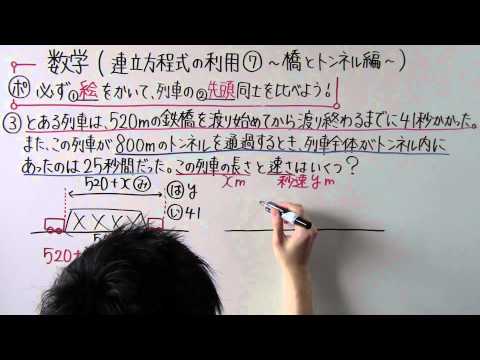 数学(連立方程式の利用⑦ ~橋とトンネル編~)
ポ 必ず①絵をかいて、列車の②先頭同士を比べよう!
③とある列車は、520mの鉄橋を渡り始めてから渡り終わるまでに41秒かかった。
また、この列車が800mのトンネルを通過するとき、列車全体がトンネル内に
あったのは25秒間だった。この列車の長さと速さはいくつ?
xm 秒速ym
520+x み は y
じ 41
520+